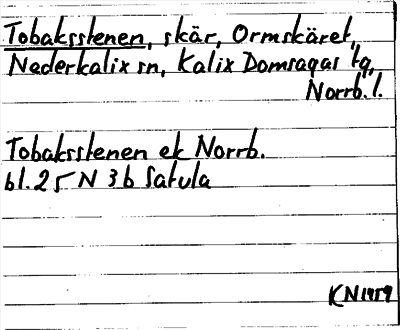 Tobaksstenen, skär, Ormskäret,
Nederkalix sn, Kalix Domsagas tg,
Norrb. l.
Tobaksstenen ek Norrb.
bl. 25 N 3b Satula
KN 1959